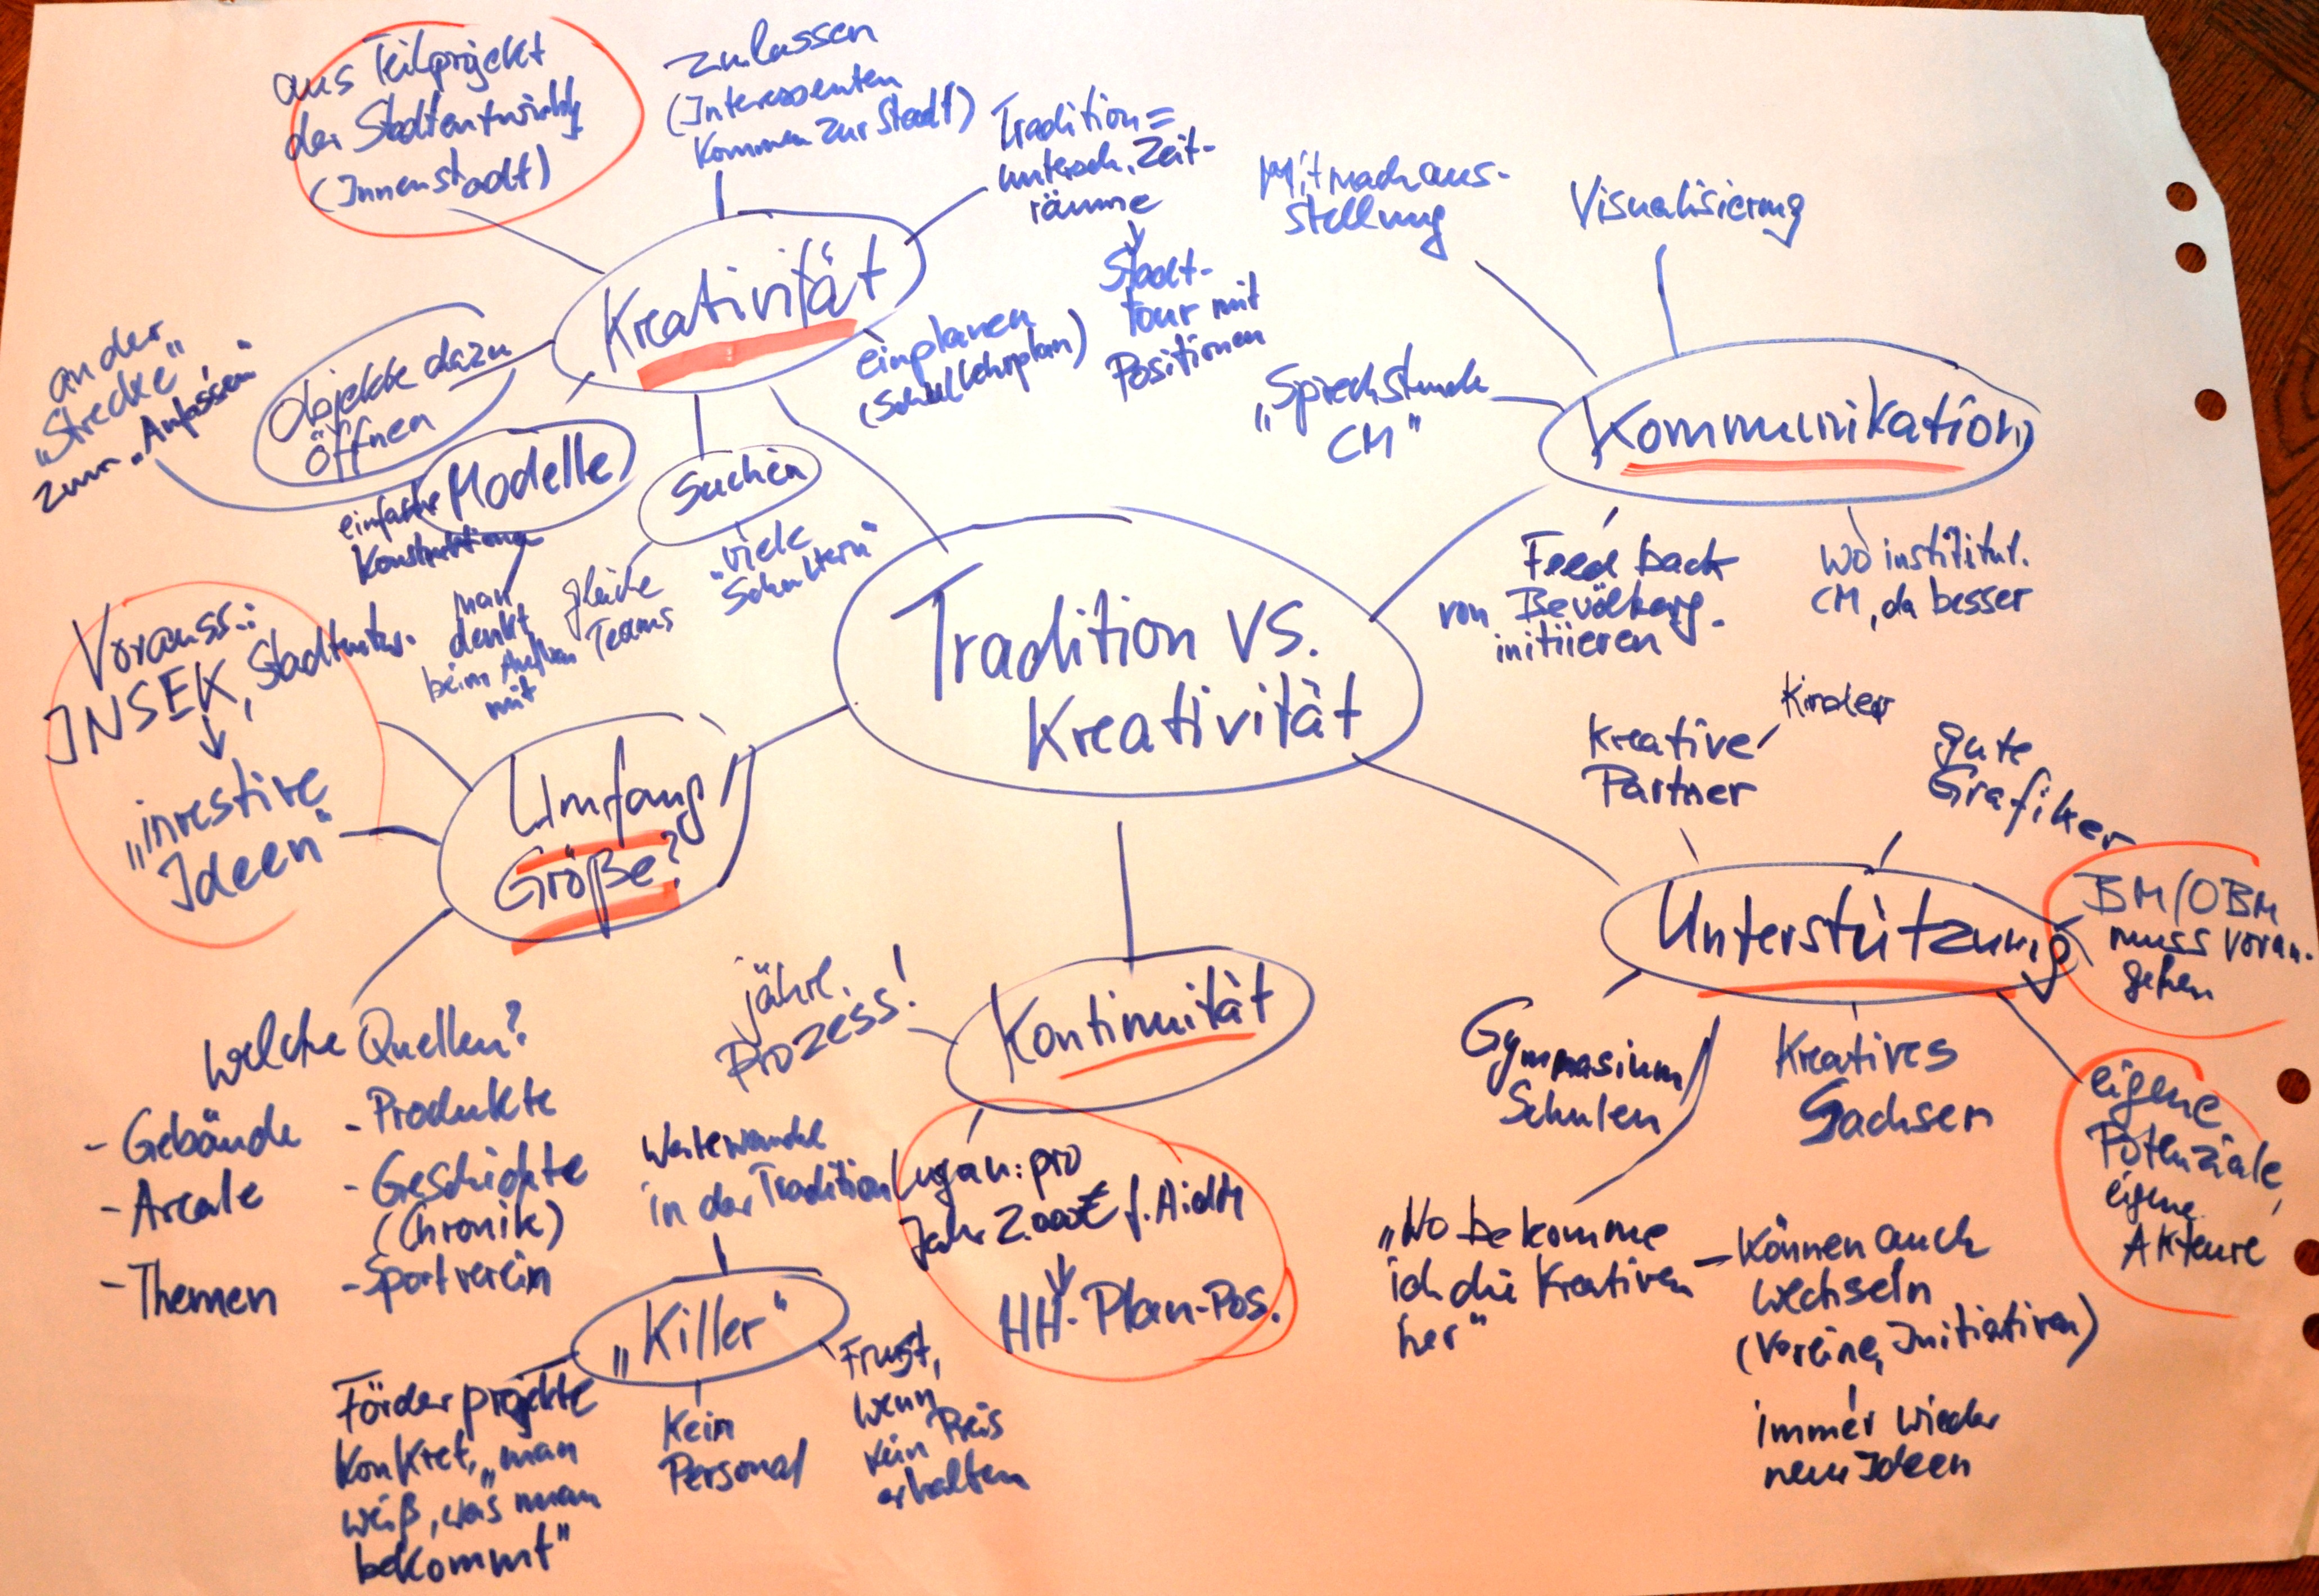 aus Teilprojekt
der Stadtentwicklg
(Innenstadt)
zulassen
(Interessenten
kommen zur Stadt)
Tradition =
untersch. Zeit-
räume
Stadt-
tour mit
Positionen
Kreativität
einplanen
(Schullehrplan)
an der
„Strecke"
zum „Anfassen"
Objekte dazu
öffnen
Modelle
einfache
Konstruktionen
man
denkt
beim
mit
suchen
gleiche
Teams
„viele
Schultern"
Mitmachaus-
stellung
Visualisierung
„Sprechstunde
CM"
Kommunikation
Feedback
von Bevölkerg.
initiieren
wo institut.
CM, da besser
Tradition vs.
Kreativität
Vorauss.:
INSEK, Stadtentw.
„investive
Ideen"
Umfang
Größe?
welche Quellen?
- Gebäude
- Areale
- Themen
- Produkte
- Geschichte
(Chronik)
- Sportverein
jährl.
Prozess!
Kontinuität
Lugau: pro
Jahr 2.000€ f. AidM
HH-Plan-Pos.
Wertewandel
in der Tradition
„Killer"
Förderprojekte
konkret, „man
weiß, was man
bekommt"
kein
Personal
Frust,
wenn
kein Preis
erhalten
Kreative
Partner
Kinder
gute
Grafiker
Unterstützung
BM/OBM
muss voran-
gehen
eigene
Potenziale,
eigene
Akteure
Gymnasium
Schulen
Kreatives
Sachsen
„Wo bekomme
ich die Kreativen
her"
- können auch
wechseln
(Vereine, Initiativen)
immer wieder
neue Ideen